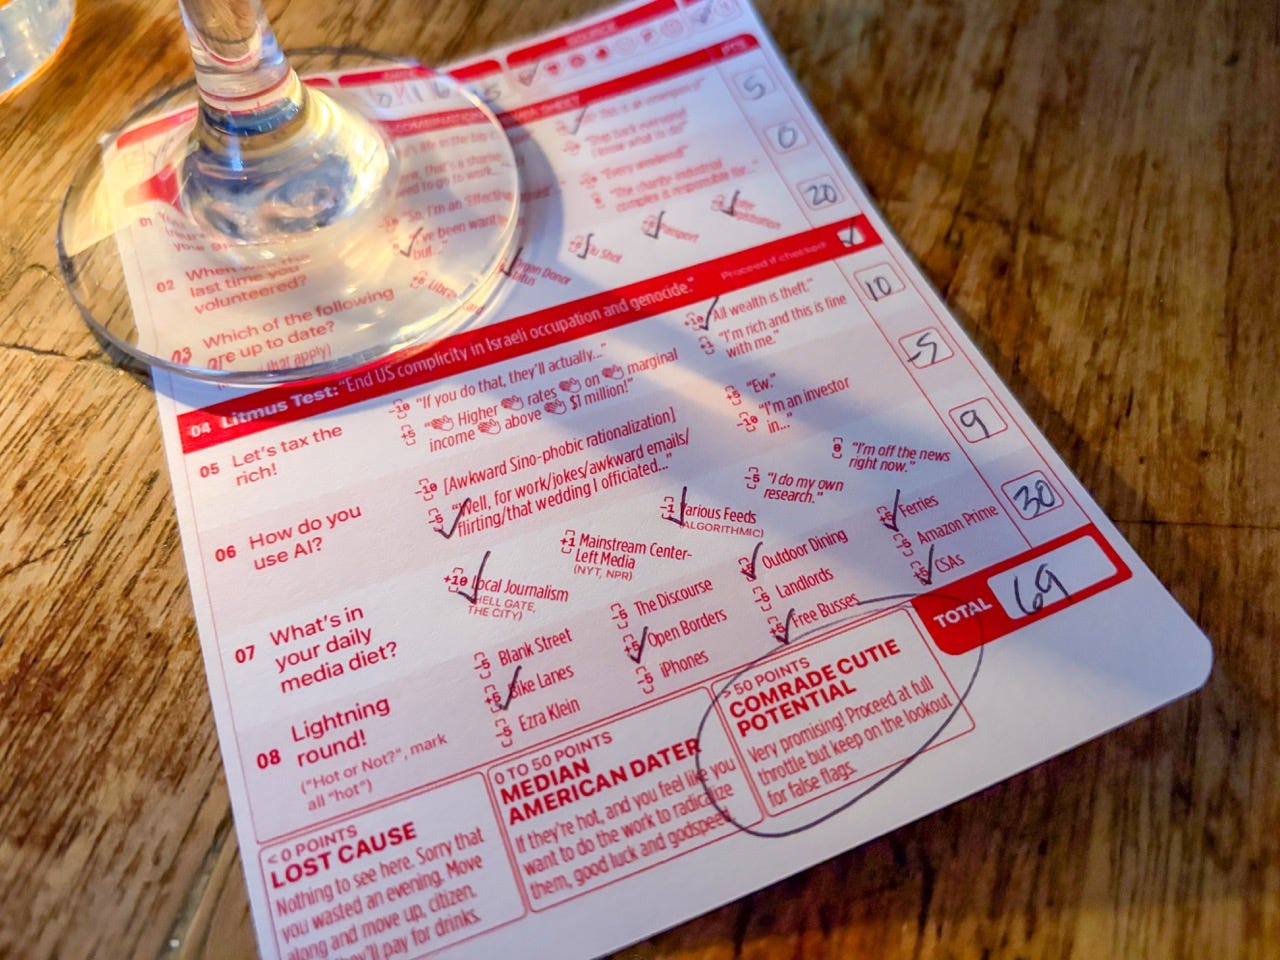 SOURCE
PTS
5
"This is an emergency!"
"Step back everyone!
I know what to do"
0
"Every weekend!"
"The charity-industrial
complex is responsible for..."
20
01
"So, I'm an 'Effective
"I've been want
but..."
02 When
last time you
volunteered?
Flu Shot
Organ Donor
Status
03 Which of the following
are up to date?
(that apply)
04 Litmus Test: "End US complicity in Israeli occupation and genocide." Proceed if checked!
05 Let's tax the
rich!
-10 "If you do that, they'll actually..."
+5 "👏 Higher 👏 rates 👏 on 👏 marginal
income 👏 above 👏 $1 million!"
+10 "All wealth is theft."
"I'm rich and this is fine
with me."
10
06 How do you
use AI?
-10 [Awkward Sino-phobic rationalization]
-5 "Well, for work/jokes/awkward emails/
flirting/that wedding I officiated..."
+5 "Ew."
-10 "I'm an investor
in..."
-5
07 What's in
your daily
media diet?
+10 Local Journalism
(HELL GATE,
THE CITY)
+1 Mainstream Center-
Left Media
(NYT, NPR)
-1 Various Feeds
(ALGORITHMIC)
-5 "I do my own
research."
0 "I'm off the news
right now."
9
08 Lightning
round!
("Hot or Not?", mark
all "hot")
-5 Blank Street
+5 Bike Lanes
-5 Ezra Klein
-5 The Discourse
+5 Open Borders
-5 iPhones
Outdoor Dining
-5 Landlords
+5 Free Busses
+5 Ferries
-5 Amazon Prime
+5 CSAs
30
TOTAL 69
< 0 POINTS
LOST CAUSE
Nothing to see here. Sorry that
you wasted an evening. Move
along and move up, citizen.
They'll pay for drinks.
0 TO 50 POINTS
MEDIAN
AMERICAN DATER
If they're hot, and you feel like you
want to do the work to radicalize
them, good luck and godspeed.
> 50 POINTS
COMRADE CUTIE
POTENTIAL
Very promising! Proceed at full
throttle but keep on the lookout
for false flags.